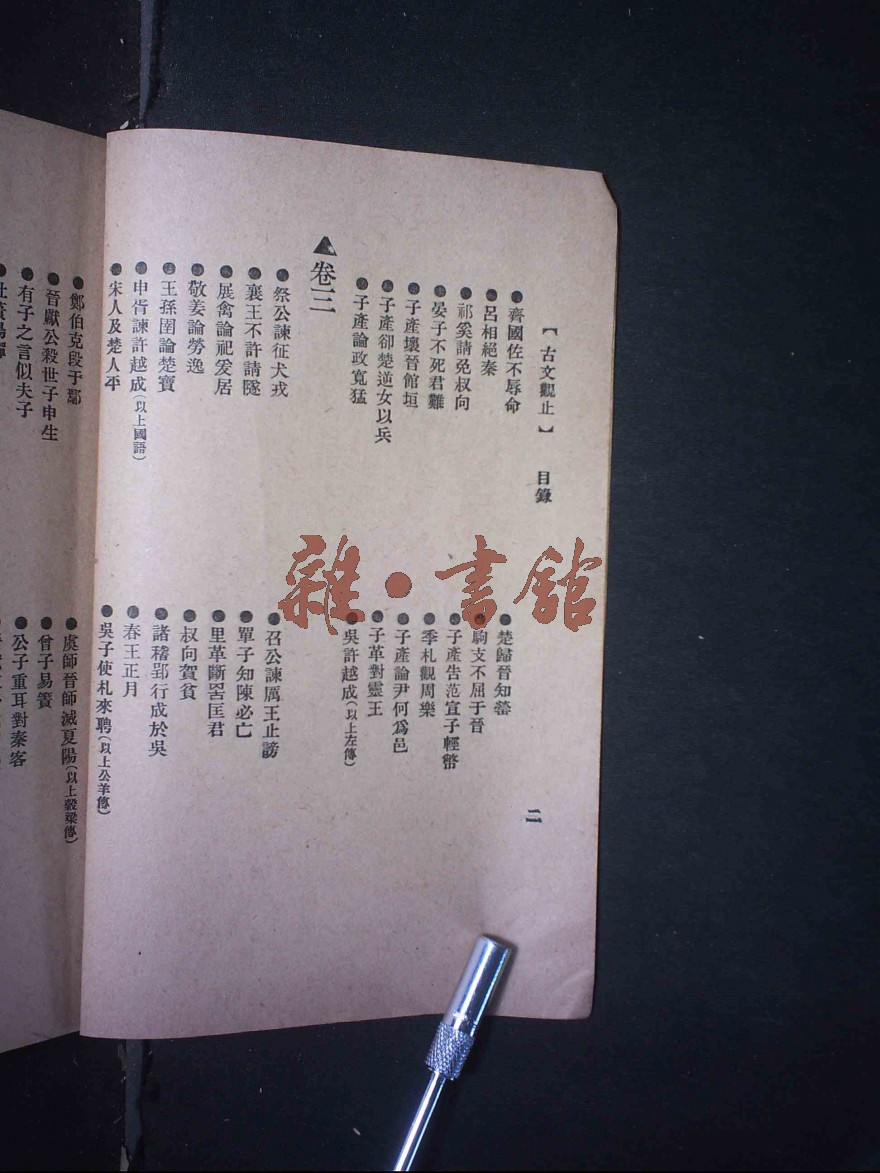 【古文觀止】　目錄　二
●齊國佐不辱命　●楚歸晉知罃
●呂相絕秦　●駒支不屈于晉
●祁奚請免叔向　●子產告范宣子輕幣
●晏子不死君難　●季札觀周樂
●子產壞晉館垣　●子產論尹何爲邑
●子產卻楚逆女以兵　●子革對靈王
●子產論政寬猛　●吳許越成(以上左傳)
▲卷三
●祭公諫征犬戎　●召公諫厲王止謗
●襄王不許請隧　●單子知陳必亡
●展禽論祀爰居　●里革斷罟匡君
●敬姜論勞逸　●叔向賀貧
●王孫圉論楚寶　●諸稽郢行成於吳
●申胥諫許越成(以上國語)　●春王正月
●宋人及楚人平　●吳子使札來聘(以上公羊傳)
●鄭伯克段于鄢　●虞師晉師滅夏陽(以上穀梁傳)
●晉獻公殺世子申生　●曾子易簀
●有子之言似夫子　●公子重耳對秦客
雜·書館